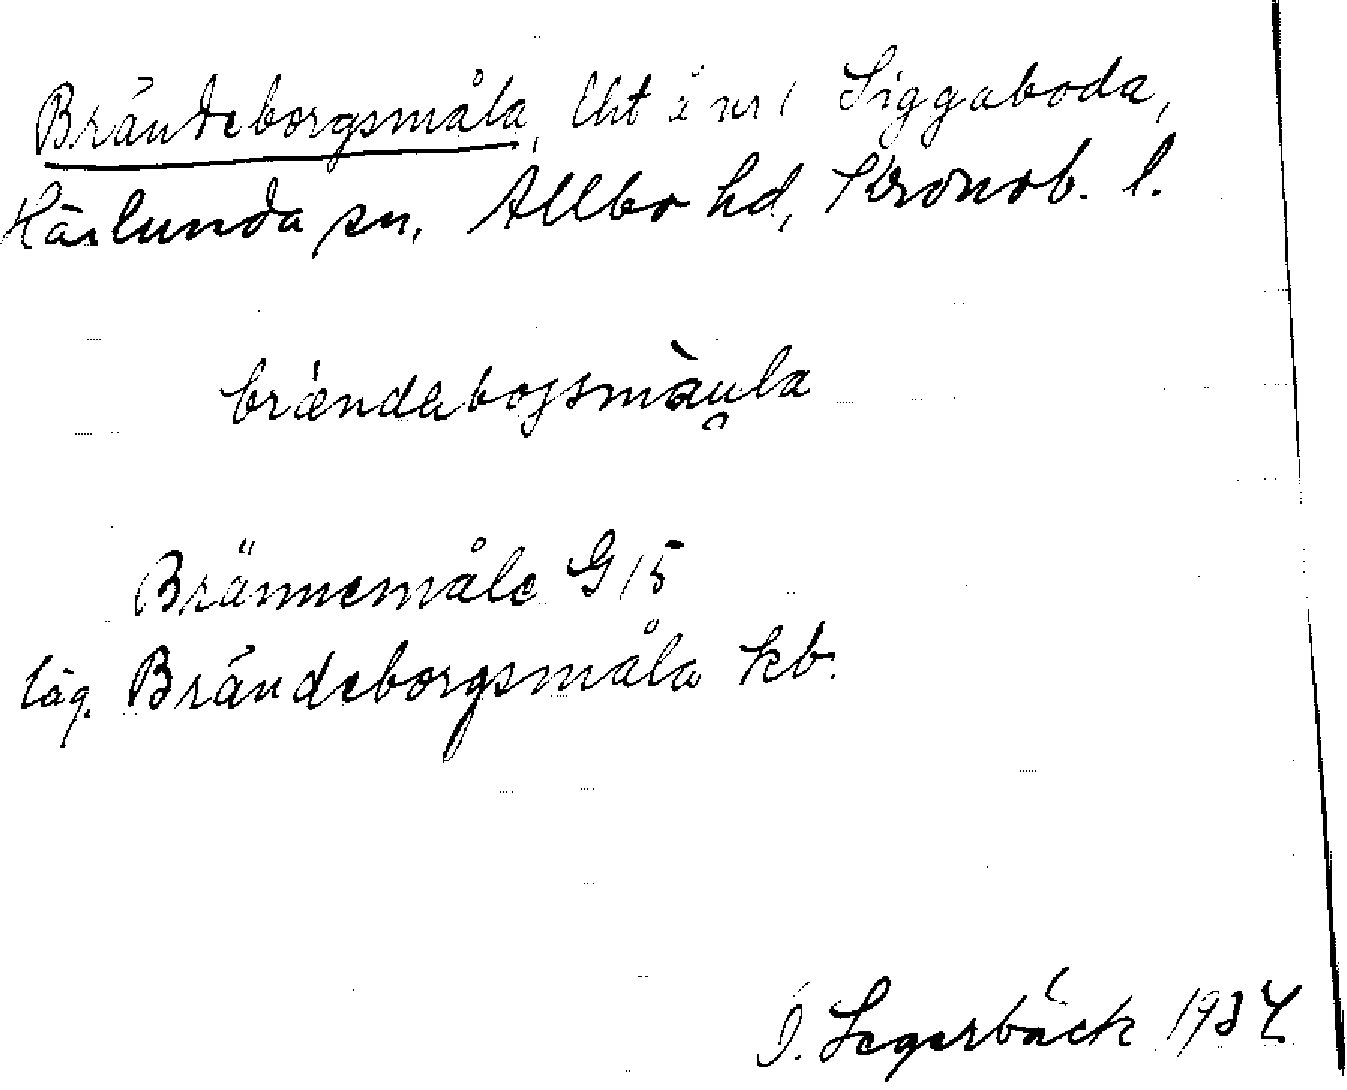 Brändeborgsmåla, lht å nr 1 Siggaboda,
Härlunda sn, Allbo hd, Kronob. l.
brændabogsmàu̯la
Brännemåle G 15
läg. Brändeborgsmåla kb.
J. Segerbäck 1934